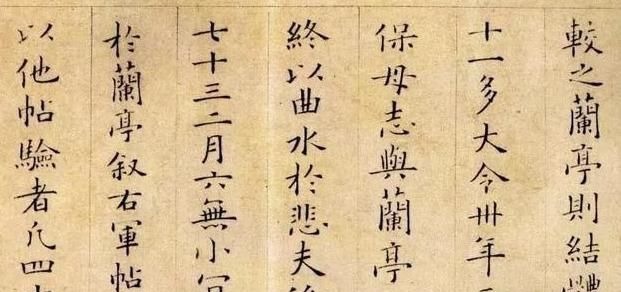 較之蘭亭則結體
十一多大令卅年
保母志與蘭亭
終以曲水於悲夫後
七十三二月六無小
於蘭亭叙右軍帖
以他帖驗者凡四